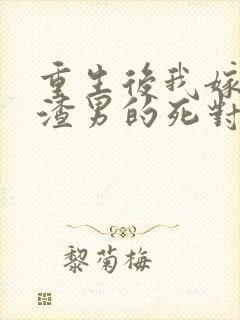 重生後我嫁
渣男的死對
黎菊梅